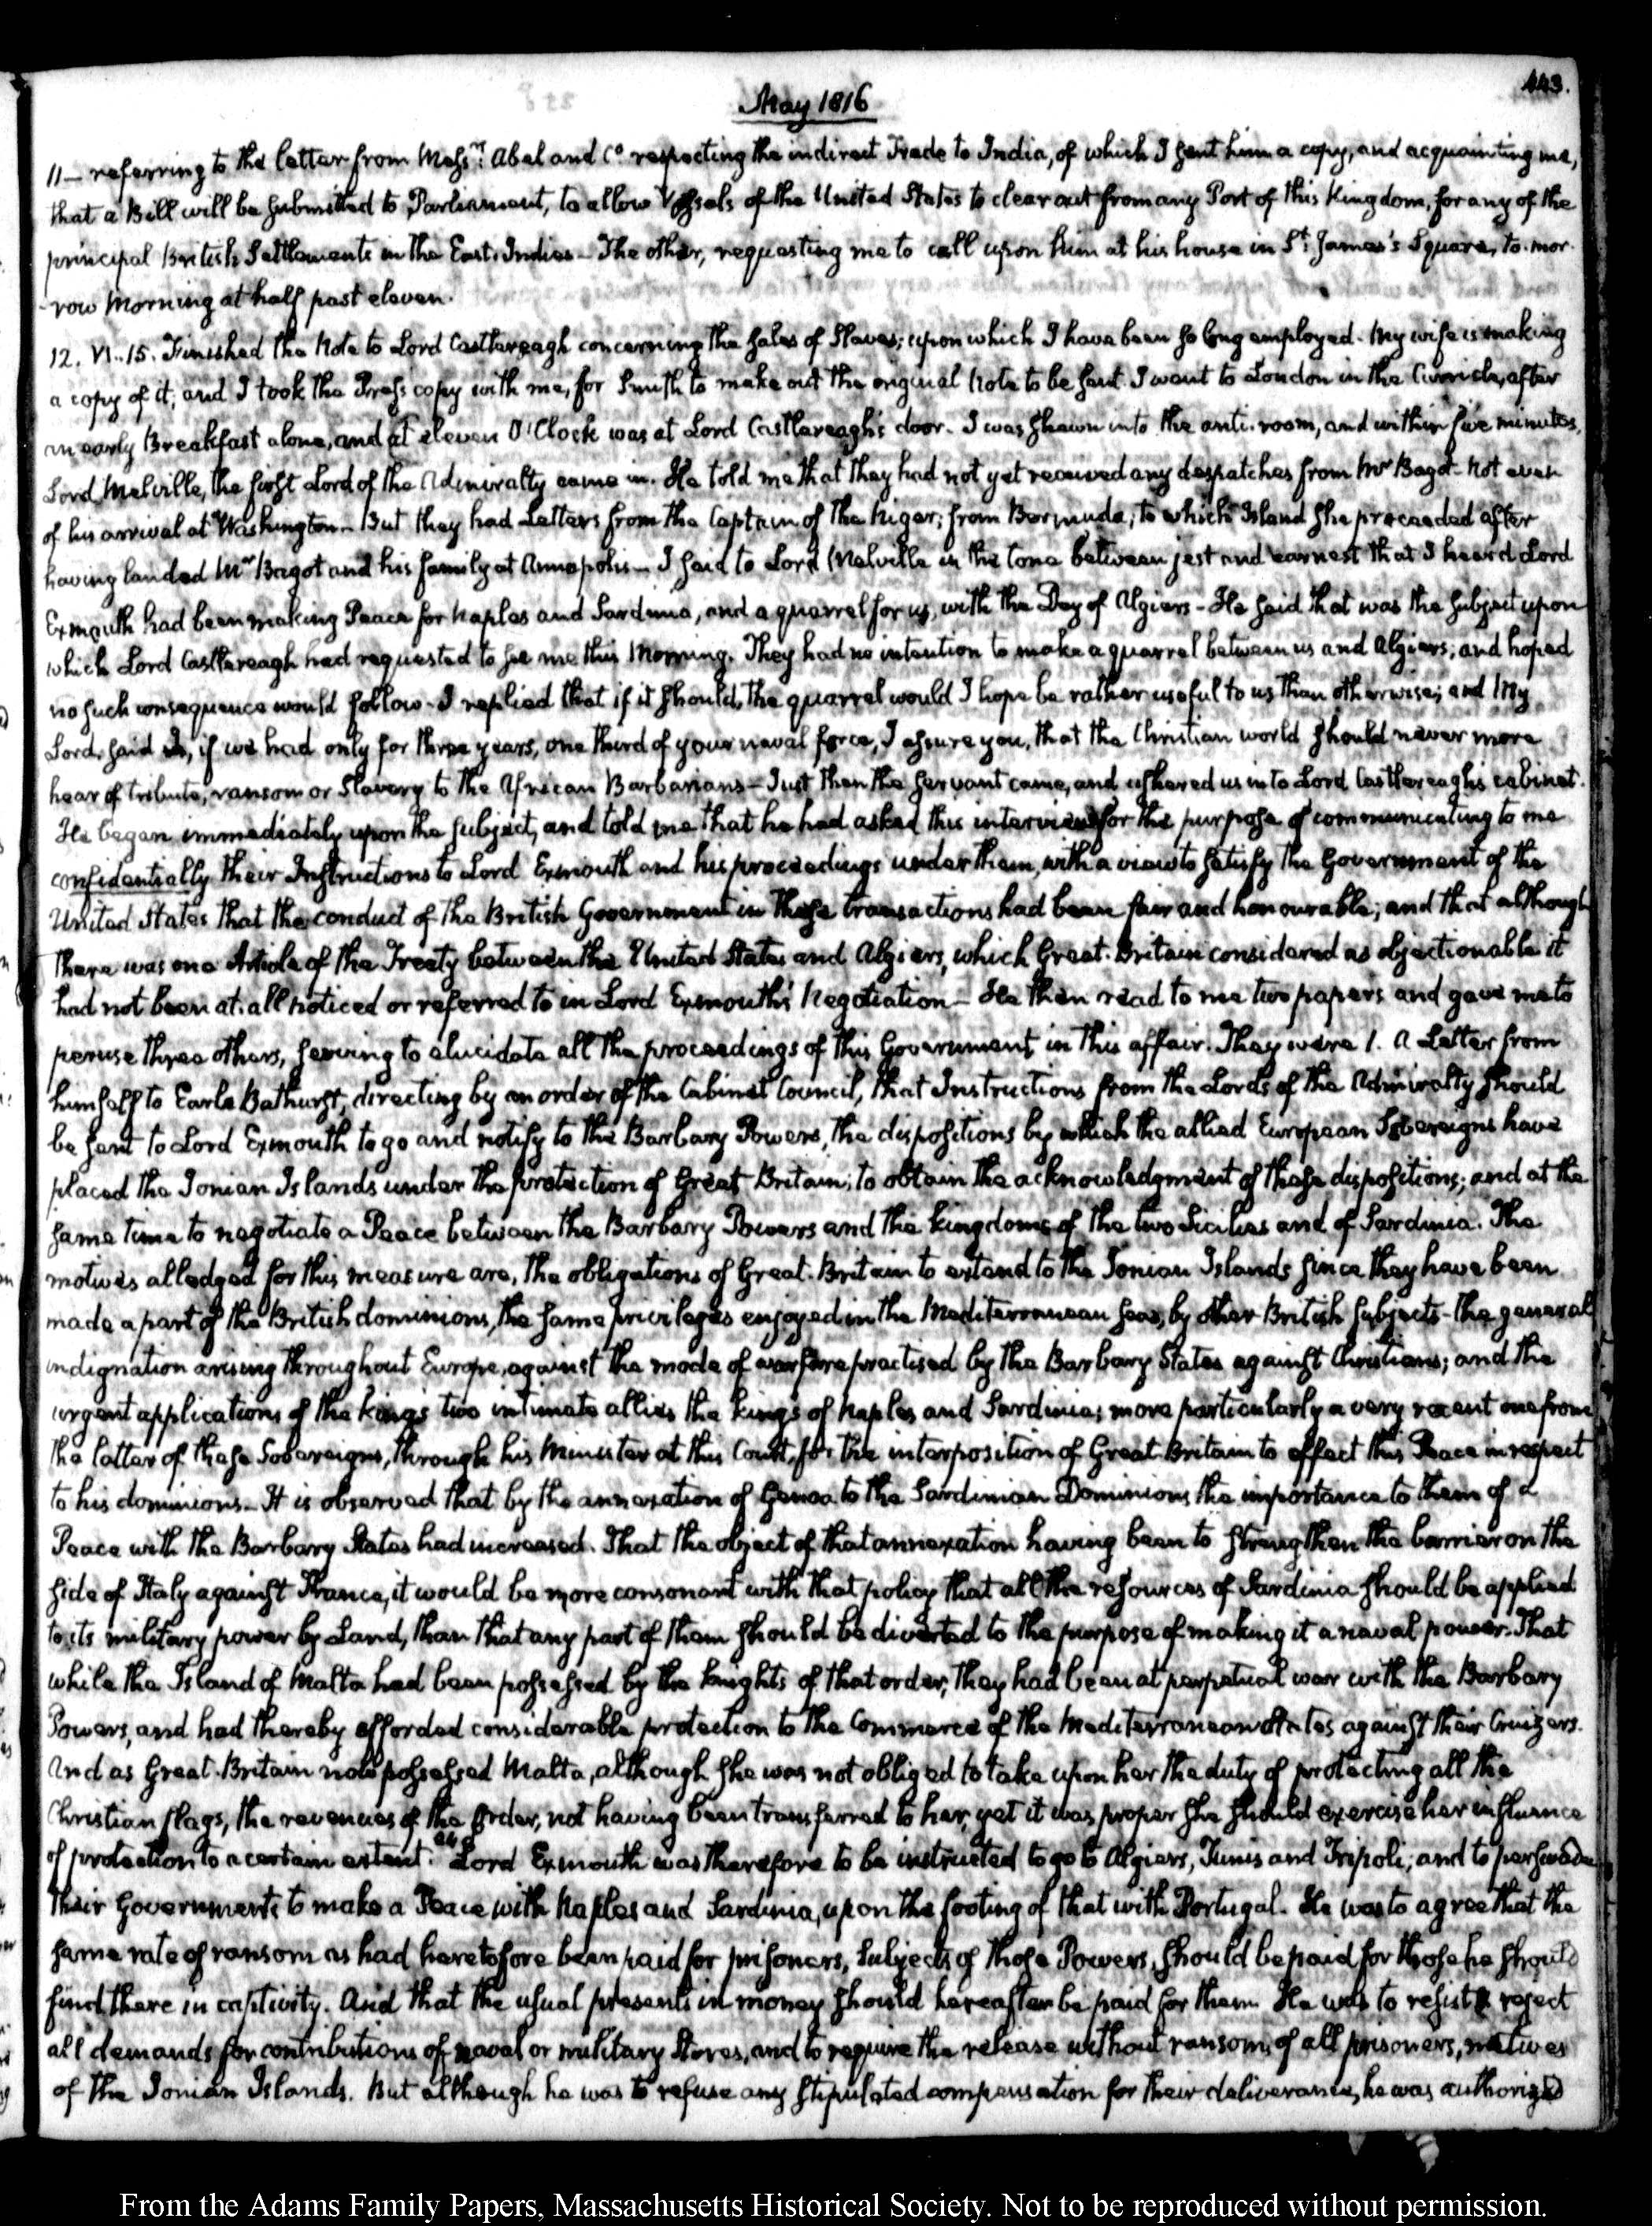 443.
May 1816
11— referring to the letter from Messrs. Abel and Co. respecting the indirect Trade to India, of which I sent him a copy, and acquainting me,
that a Bill will be submitted to Parliament, to allow Vessels of the United States to clear out from any Port of this Kingdom, for any of the
principal British Settlements in the East. Indies— The other, requesting me to call upon him at his house in St. James's Square, to-mor-
-row Morning at half past eleven.
12. VI..15. Finished the Note to Lord Castlereagh concerning the sales of Slaves; upon which I have been so long employed. My wife is making
a copy of it; and I took the Press copy with me, for Smith to make out the original Note to be sent. I went to London in the Curricle, after
an early Breakfast alone, and at eleven O'Clock was at Lord Castlereagh's door. I was shewn into the anti-room, and within five minutes,
Lord Melville, the first Lord of the Admiralty came in. He told me that they had not yet received any despatches from Mr Bagot. Not even
of his arrival at Washington— But they had Letters from the Captain of the Niger; from Bermuda; to which Island she proceeded after
having landed Mr Bagot and his family at Annapolis— I said to Lord Melville in the tone between jest and earnest that I heard Lord
Exmouth had been making Peace for Naples and Sardinia, and a quarrel for us, with the Dey of Algiers— He said that was the subject upon
which Lord Castlereagh had requested to see me this Morning. They had no intention to make a quarrel between us and Algiers; and hoped
no such consequence would follow. I replied that if it should, the quarrel would I hope be rather useful to us than otherwise; and My
Lord, said I, if we had only for three years, one third of your naval force, I assure you, that the Christian world should never more
hear of tribute, ransom or Slavery to the African Barbarians— Just then the servant came, and ushered us into Lord Castlereagh's cabinet.
He began immediately upon the subject, and told me that he had asked this interview for the purpose of communicating to me
confidentially their Instructions to Lord Exmouth and his proceedings under them, with a view to satisfy the Government of the
United States that the conduct of the British Government in these transactions had been fair and honourable; and that although
there was one Article of the Treaty between the United States and Algiers, which Great-Britain considered as objectionable it
had not been at all noticed or referred to in Lord Exmouth's Negotiation— He then read to me two papers and gave me to
peruse three others, serving to elucidate all the proceedings of this Government in this affair. They were 1. A Letter from
himself to Earle Bathurst, directing by an order of the Cabinet Council, that Instructions from the Lords of the Admiralty should
be sent to Lord Exmouth to go and notify to the Barbary Powers, the dispositions by which the allied European Sovereigns have
placed the Ionian Islands under the protection of Great-Britain; to obtain the acknowledgment of these dispositions; and at the
same time to negotiate a Peace between the Barbary Powers and the kingdoms of the two Sicilies and of Sardinia. The
motives alledged for this measure are, the obligations of Great-Britain to extend to the Ionian Islands since they have been
made a part of the British dominions, the same privileges enjoyed in the Mediterranean seas, by other British subjects— the general
indignation arising throughout Europe, against the mode of warfare practised by the Barbary States against Christians; and the
urgent applications of the king's two intimate allies the kings of Naples and Sardinia; more particularly a very recent one from
the latter of these Sovereigns, through his Minister at this Court, for the interposition of Great-Britain to effect this Peace in respect
to his dominions— It is observed that by the annexation of Genoa to the Sardinian Dominions the importance to them of a
Peace with the Barbary States had increased. That the object of that annexation having been to strengthen the barrier on the
side of Italy against France, it would be more consonant with that policy that all the resources of Sardinia should be applied
to its military power by Land, than that any part of them should be diverted to the purpose of making it a naval power. That
while the Island of Malta had been possessed by the knights of that order, they had been at perpetual war with the Barbary
Powers, and had thereby afforded considerable protection to the Commerce of the Mediterranean States against their Cruizers.
And as Great-Britain now possessed Malta, although she was not obliged to take upon her the duty of protecting all the
Christian flags, the revenues of the Order, not having been transferred to her, yet it was proper she should exercise her influence
of protection to a certain extent. Lord Exmouth was therefore to be instructed to go to Algiers, Tunis and Tripoli; and to persuade
their Governments to make a Peace with Naples and Sardinia, upon the footing of that with Portugal. He was to agree that the
same rate of ransom as had heretofore been paid for prisoners, subjects of those Powers, should be paid for those he should
find there in captivity. And that the usual presents in money should hereafter be paid for them. He was to resist & reject
all demands for contributions of naval or military Stores, and to require the release without ransom, of all prisoners, natives
of the Ionian Islands. But although he was to refuse any stipulated compensation for their deliverance, he was authorized
From the Adams Family Papers, Massachusetts Historical Society. Not to be reproduced without permission.